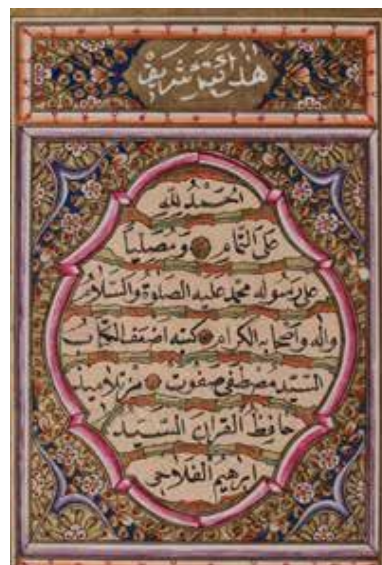 الحمد لله
على التمام ومصلياً
على رسوله محمد عليه الصلوة والسلام
واله واصحابه الكرام كتبه اضعف الكتاب
السيد مصطفى صفوت من تلاميذ
حافظ القران السيد
ابرهيم الفلاحى